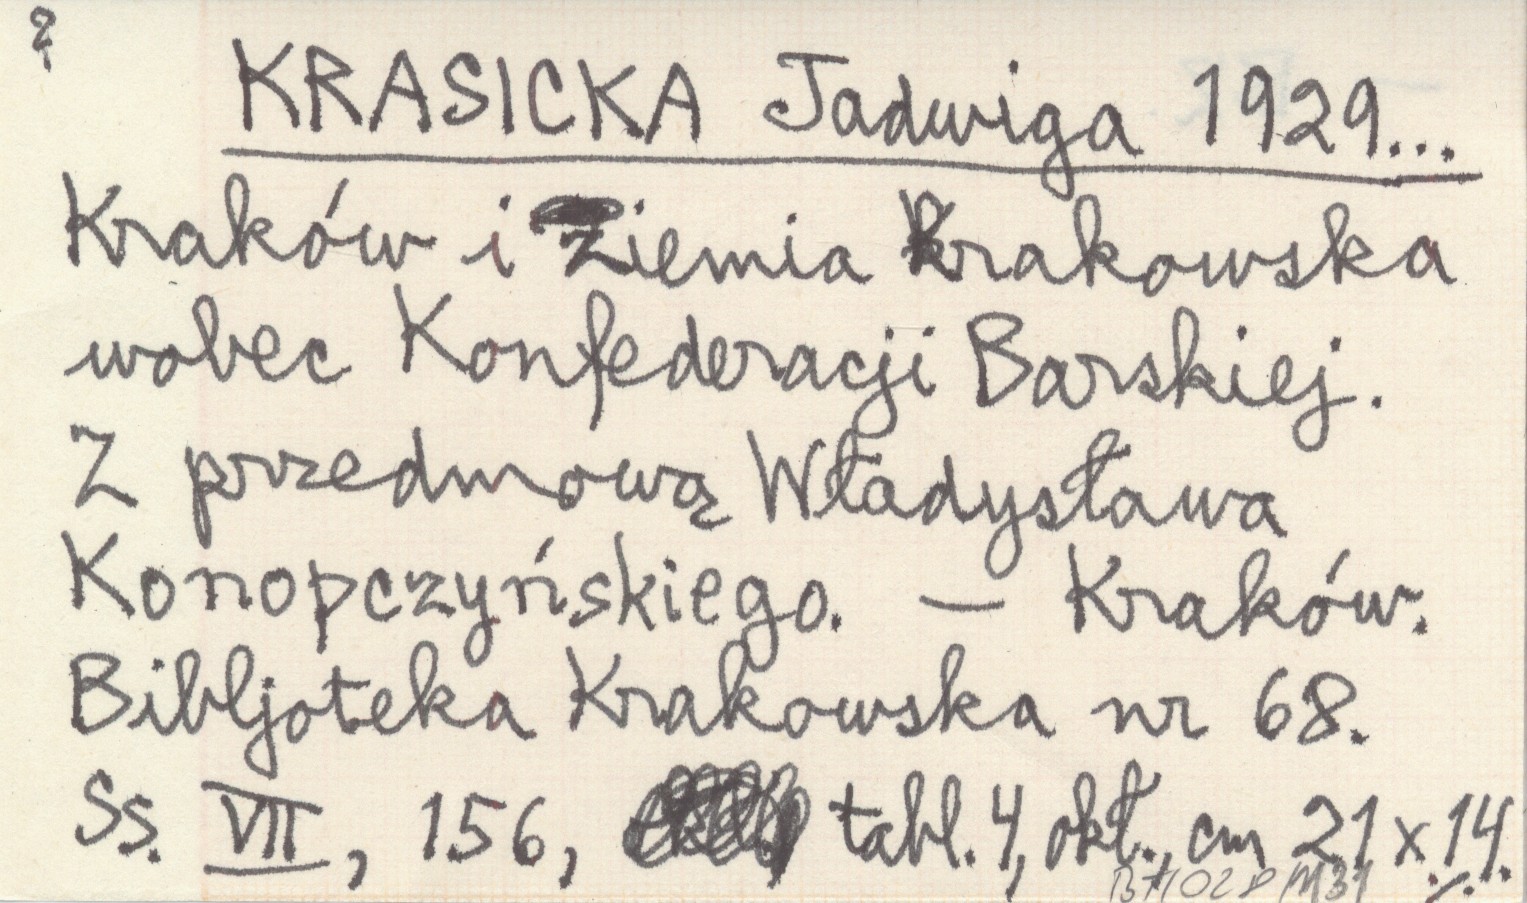 KRASICKA Jadwiga 1929...
Kraków i Ziemia Krakowska
wobec Konfederacji Barskiej.
Z przedmową Władysława
Konopczyńskiego. — Kraków.
Bibljoteka Krakowska nr 68.
Ss. VII, 156, tabl. 4, okł., cm 21 x 14.